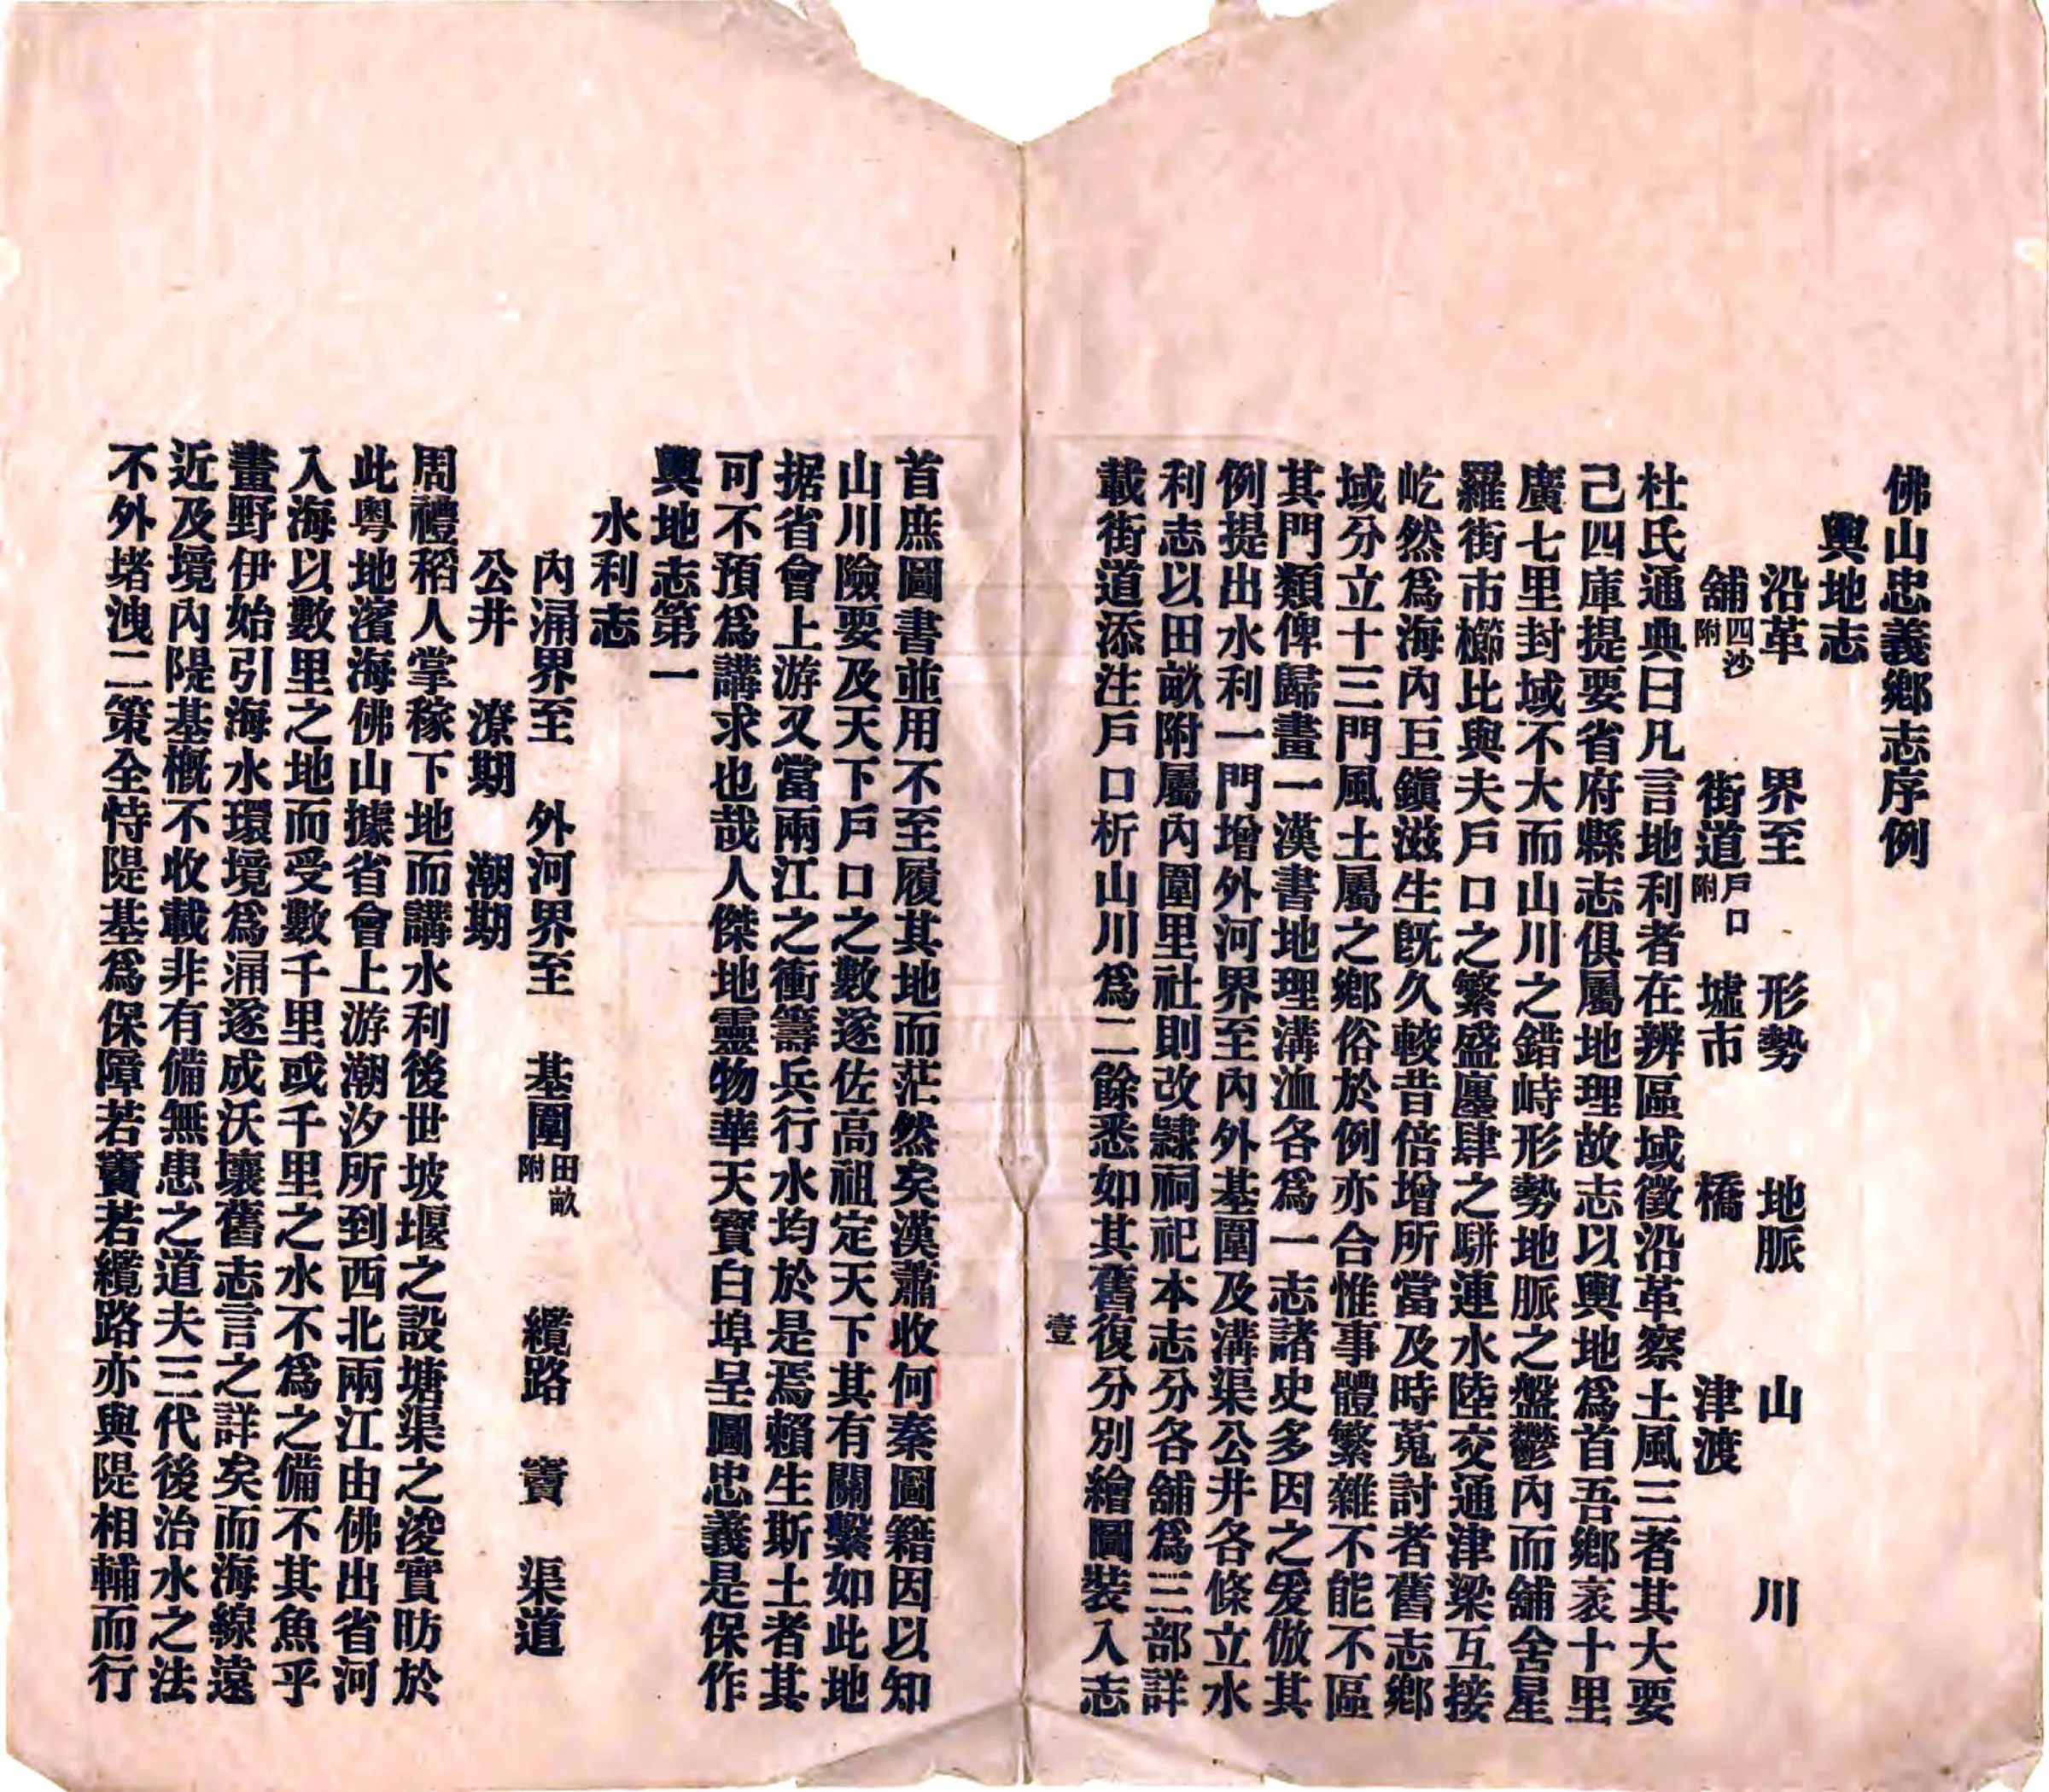 佛山忠義鄉志序例
輿地志
沿革　界至　形勢　地脈　山　川
舖四沙附　街道戶口附　墟市　橋　津渡
杜氏通典曰凡言地利者在辨區域徵沿革察土風三者其大要
己四庫提要省府縣志俱屬地理故志以輿地為首吾鄉袤十里
廣七里封域不大而山川之錯峙形勢地脈之盤鬱內而舖舍星
羅街市櫛比與夫戶口之繁盛廛肆之駢連水陸交通津梁互接
屹然為海內巨鎮滋生既久較昔倍增所當及時蒐討者舊志鄉
域分立十三門風土屬之鄉俗於例亦合惟事體繁雜不能不區
其門類俾歸畫一漢書地理溝洫各為一志諸史多因之爰倣其
例提出水利一門增外河界至內外基圍及溝渠公井各條立水
利志以田畝附屬內圍里社則改隸祠祀本志分各舖為三部詳
載街道添注戶口析山川為二餘悉如其舊復分別繪圖裝入志
壹
首庶圖書並用不至履其地而茫然矣漢蕭收何秦圖籍因以知
山川險要及天下戶口之數遂佐高祖定天下其有關繫如此地
据省會上游又當兩江之衝籌兵行水均於是焉賴生斯土者其
可不預為講求也哉人傑地靈物華天寶白埠呈圖忠義是保作
輿地志第一
水利志
內涌界至　外河界至　基圍田畝附　纜路　竇　渠道
公井　潦期　潮期
周禮稻人掌稼下地而講水利後世坡堰之設塘渠之浚實昉於
此粵地濱海佛山據省會上游潮汐所到西北兩江由佛出省河
入海以數里之地而受數千里或千里之水不為之備不其魚乎
畫野伊始引海水環境為涌遂成沃壤舊志言之詳矣而海線遠
近及境內隄基概不收載非有備無患之道夫三代後治水之法
不外堵洩二策全恃隄基為保障若竇若纜路亦與隄相輔而行